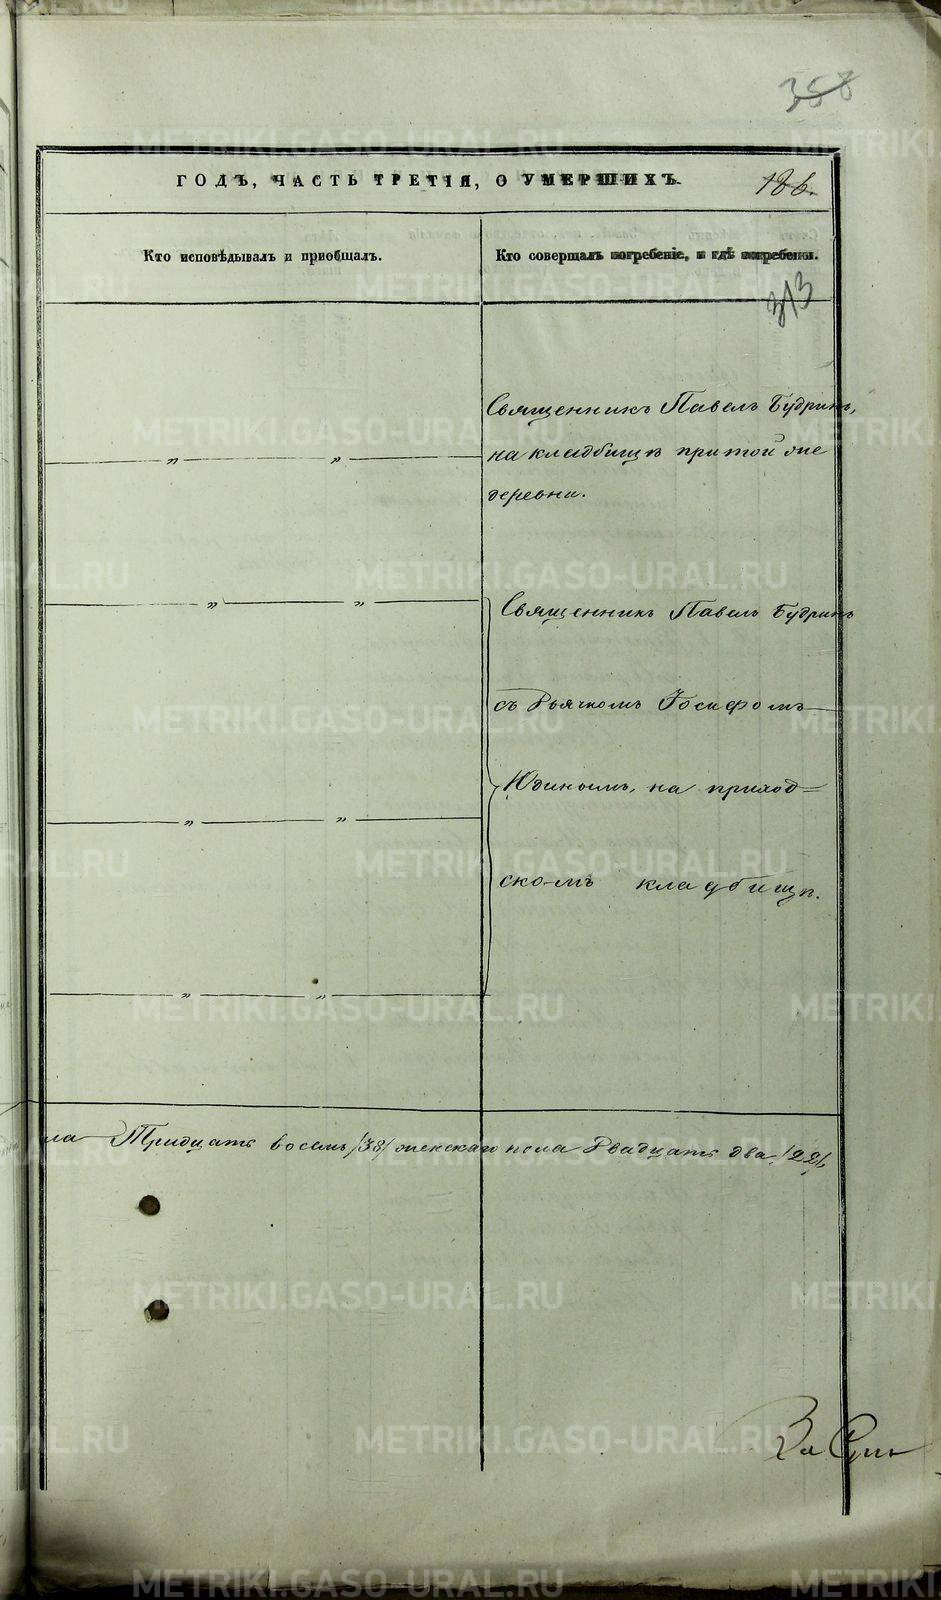 358
ГОДЪ, ЧАСТЬ ТРЕТІЯ, О УМЕРШИХЪ.
186.
Кто исповѣдывалъ и пріобщалъ.
Кто совершалъ погребеніе, и гдѣ погребены.
313
Священникъ Павелъ Будринъ,
на кладбищѣ при той же
деревни.
" "
" "
Священникъ Павелъ Будринъ
съ Дьячкомъ Іосифомъ
Юдинымъ, на приход=
" "
скомъ кладбищѣ.
" "
ла Тридцать восемь /38/ женскаго пола Двадцать два /22/,
За
METRIKI.GASO-URAL.RU